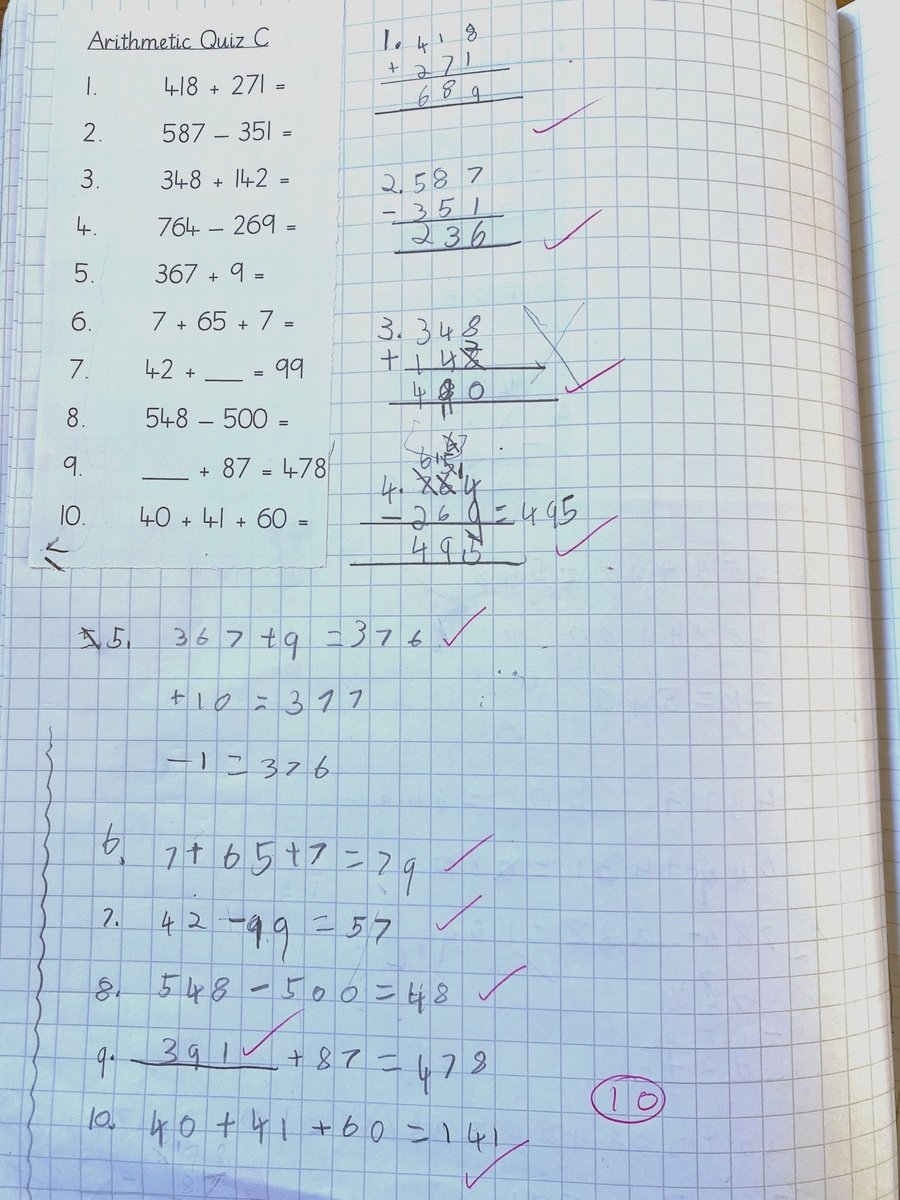 Arithmetic Quiz C
1. 418 + 271 =
2. 587 – 351 =
3. 348 + 142 =
4. 764 – 269 =
5. 367 + 9 =
6. 7 + 65 + 7 =
7. 42 + ___ = 99
8. 548 – 500 =
9. ___ + 87 = 478
10. 40 + 41 + 60 =
1. 418
+ 271
689
2. 587
- 351
236
3. 348
+ 142
490
4. 764
- 269 = 495
495
5. 367 + 9 = 376
+ 10 = 377
- 1 = 376
6. 7 + 65 + 7 = 79
7. 42 - 99 = 57
8. 548 - 500 = 48
9. 391 + 87 = 478
10. 40 + 41 + 60 = 141
10